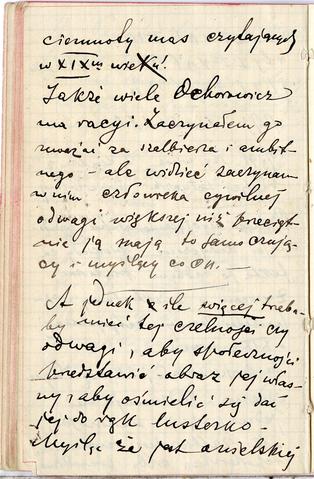 ciemnoty mas czytających
w XIXm wieku!
Jakże wiele Ochorowicz
ma racyi. Zaczynałem go
uważać za szalbierza i ambit-
nego - ale widzieć zaczynam
w nim człowieka cywilnej
odwagi większej niż przecięt-
nie ją mają to samo czują-
cy i myślący co on. —
A jednak o ile więcej trzeba-
by mieć tej czelności czy
odwagi, aby społeczności
przedstawić obraz jej włas-
ny, aby ośmielić się dać
jej do rąk lusterko -
myślę że jest anielskiej